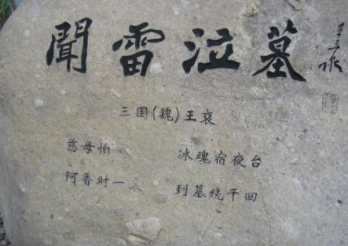 聞雷泣墓
三国(魏)王裒
慈母怕 冰魂宿夜台
阿香时一 到墓绕千回